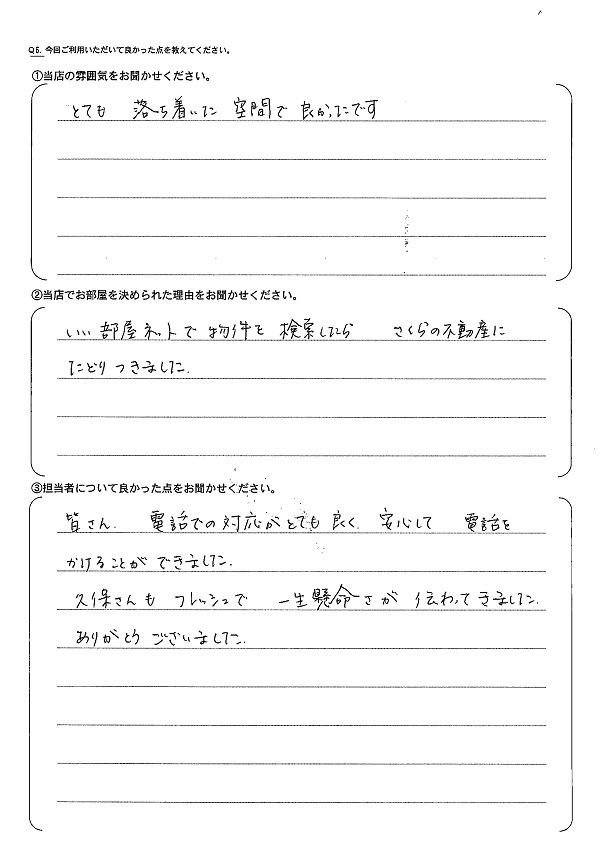 Q6. 今回ご利用いただいて良かった点を教えてください。
①当店の雰囲気をお聞かせください。
とても 落ち着いた 空間で 良かったです
②当店でお部屋を決められた理由をお聞かせください。
いい部屋ネットで 物件を 検索したら さくらの不動産に
たどりつきました。
③担当者について良かった点をお聞かせください。
皆さん、電話での対応がとても良く、安心して 電話を
かけることが できました。
久保さんも フレッシュで 一生懸命さが 伝わってきました。
ありがとう ございました。